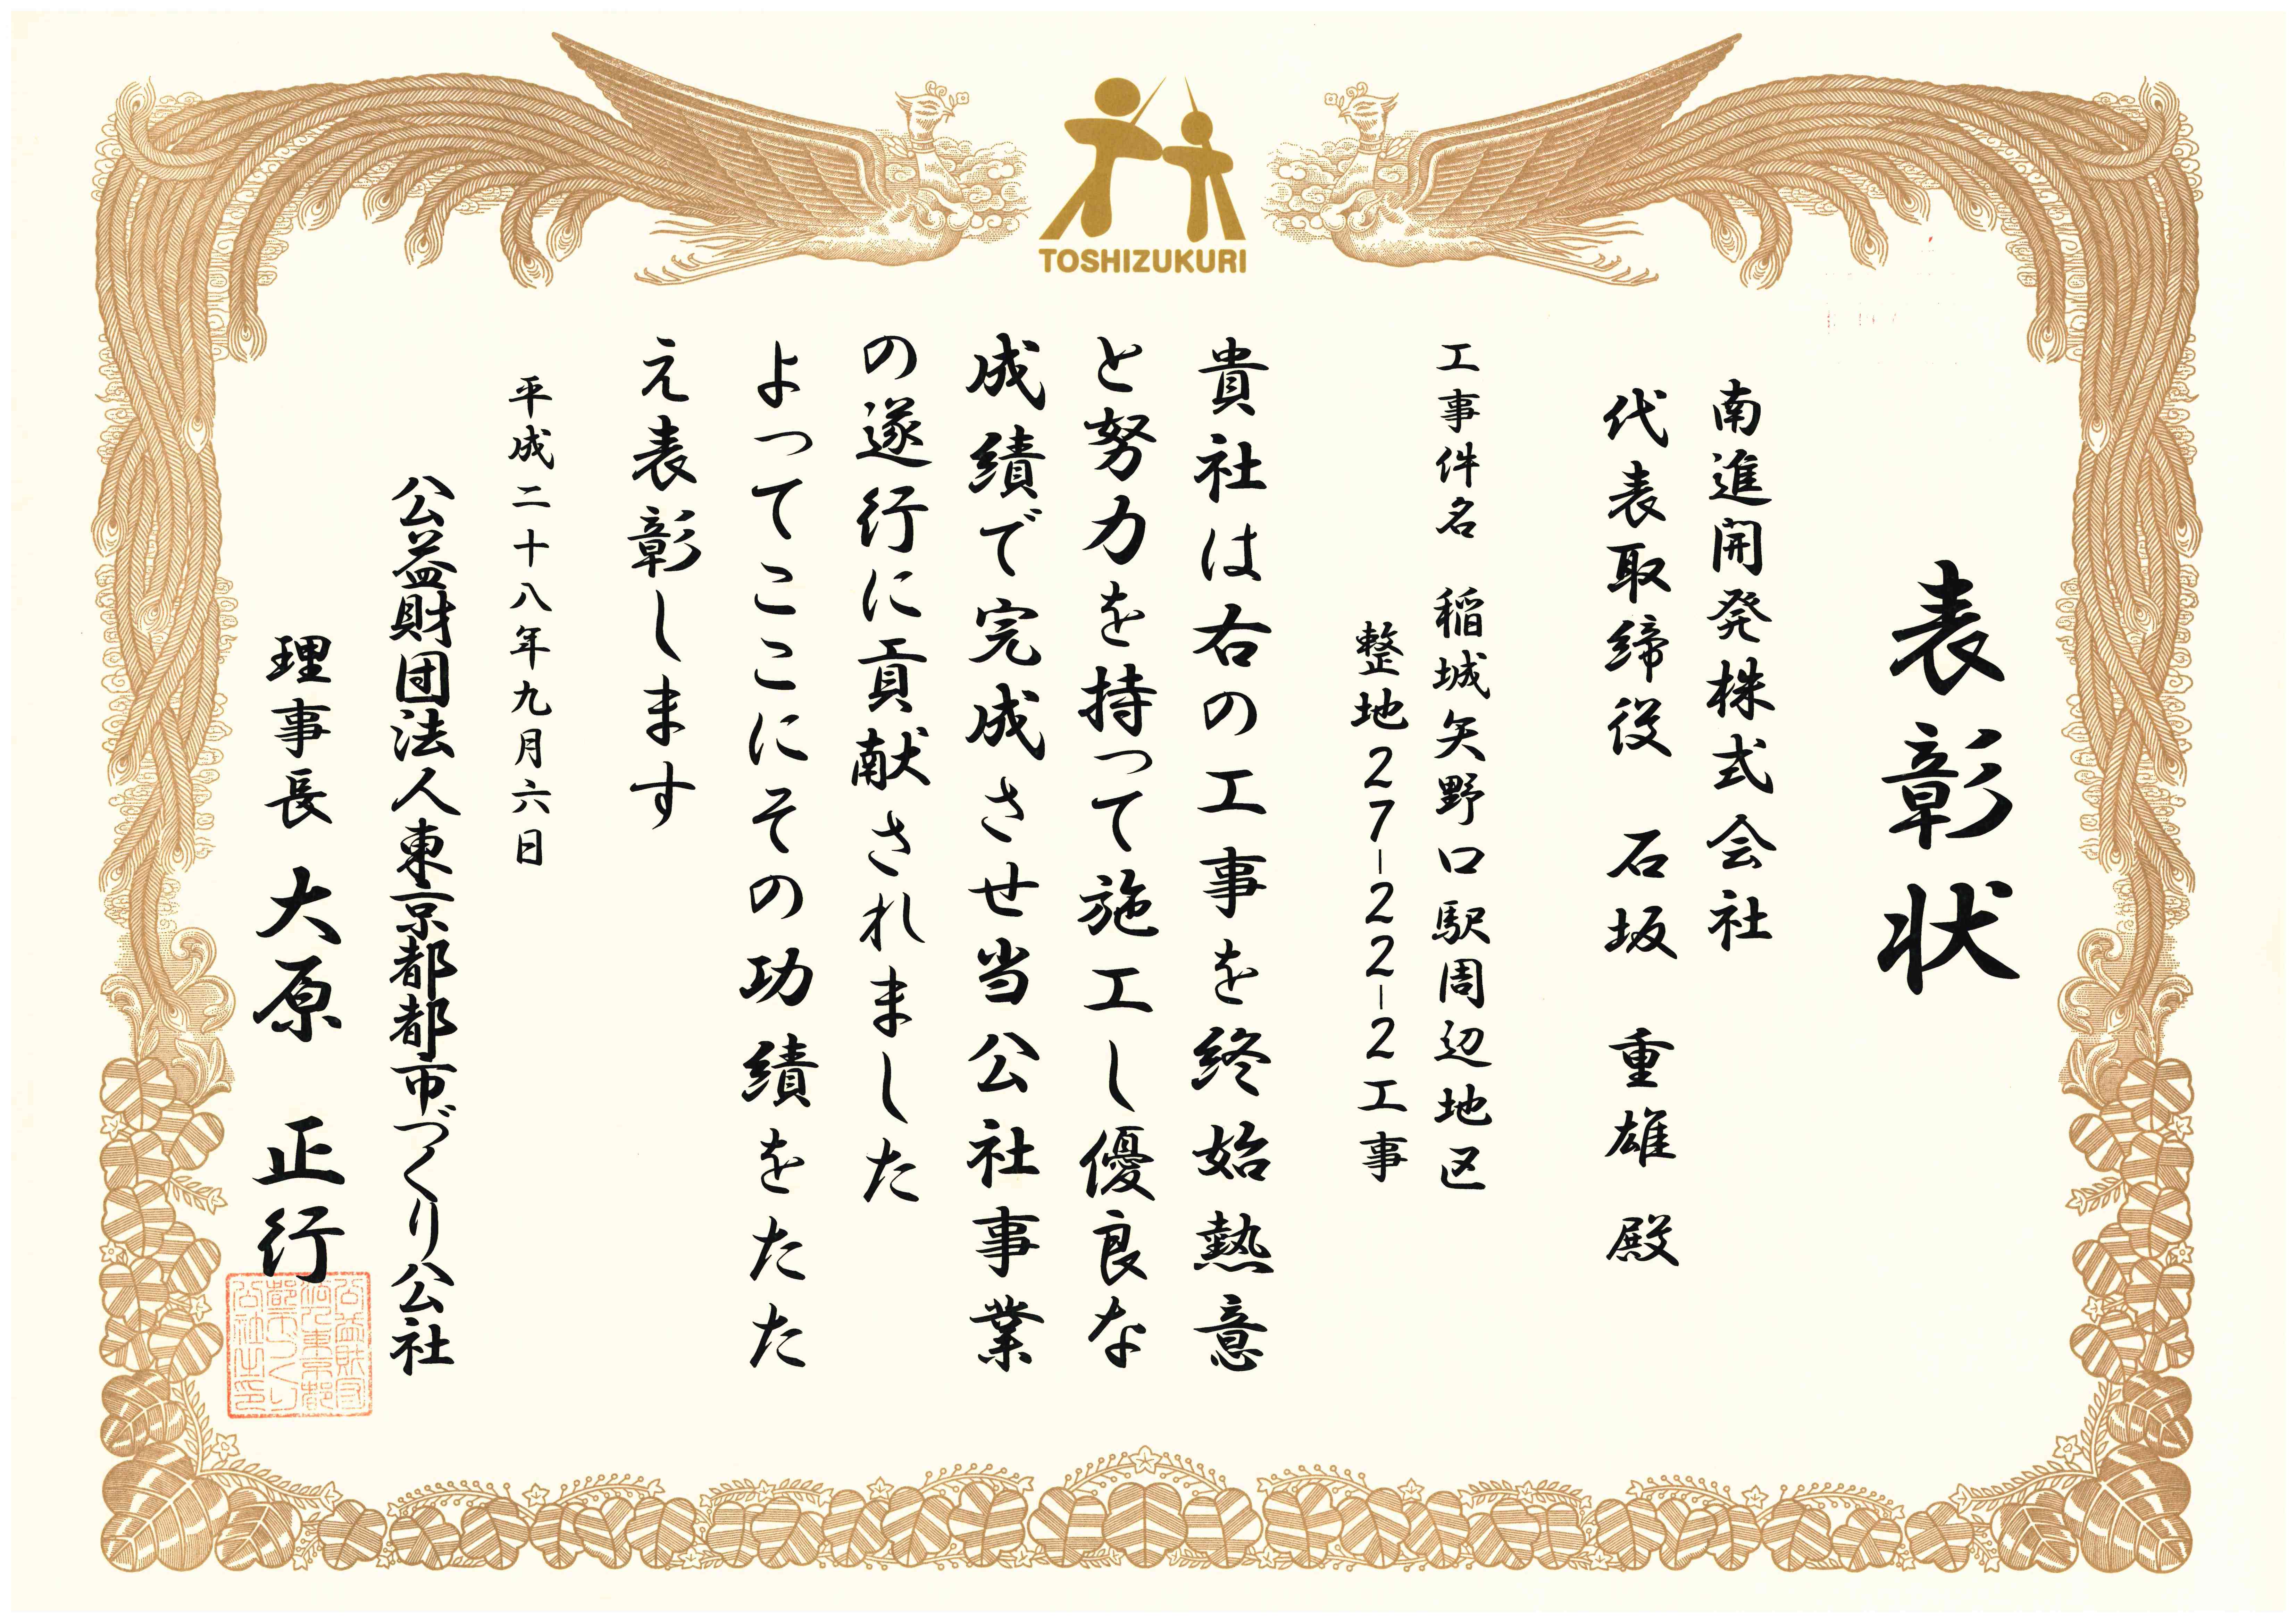 TOSHIZUKURI
表彰状
南進開発株式会社
代表取締役 石坂 重雄 殿
工事件名 稲城矢野口駅周辺地区
整地27-22-2工事
貴社は右の工事を終始熱意
と努力を持って施工し優良な
成績で完成させ当公社事業
の遂行に貢献されました
よってここにその功績をたた
え表彰します
平成二十八年九月六日
公益財団法人東京都都市づくり公社
理事長 大原 正行
公益財団
法人東京都
都市づくり
公社之印